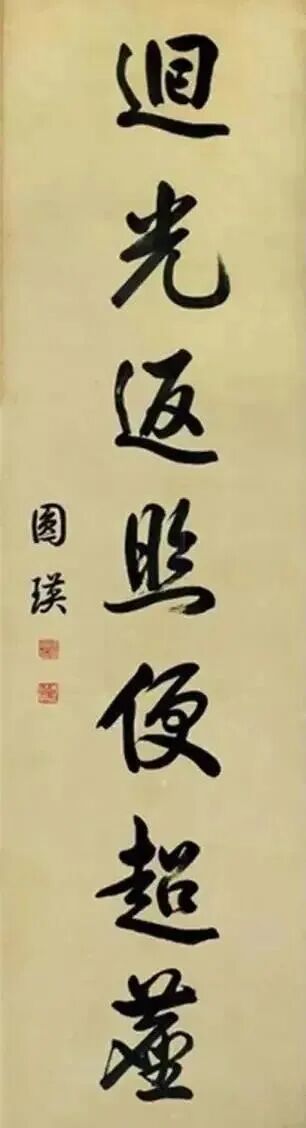 迴光返照便超塵
圓瑛